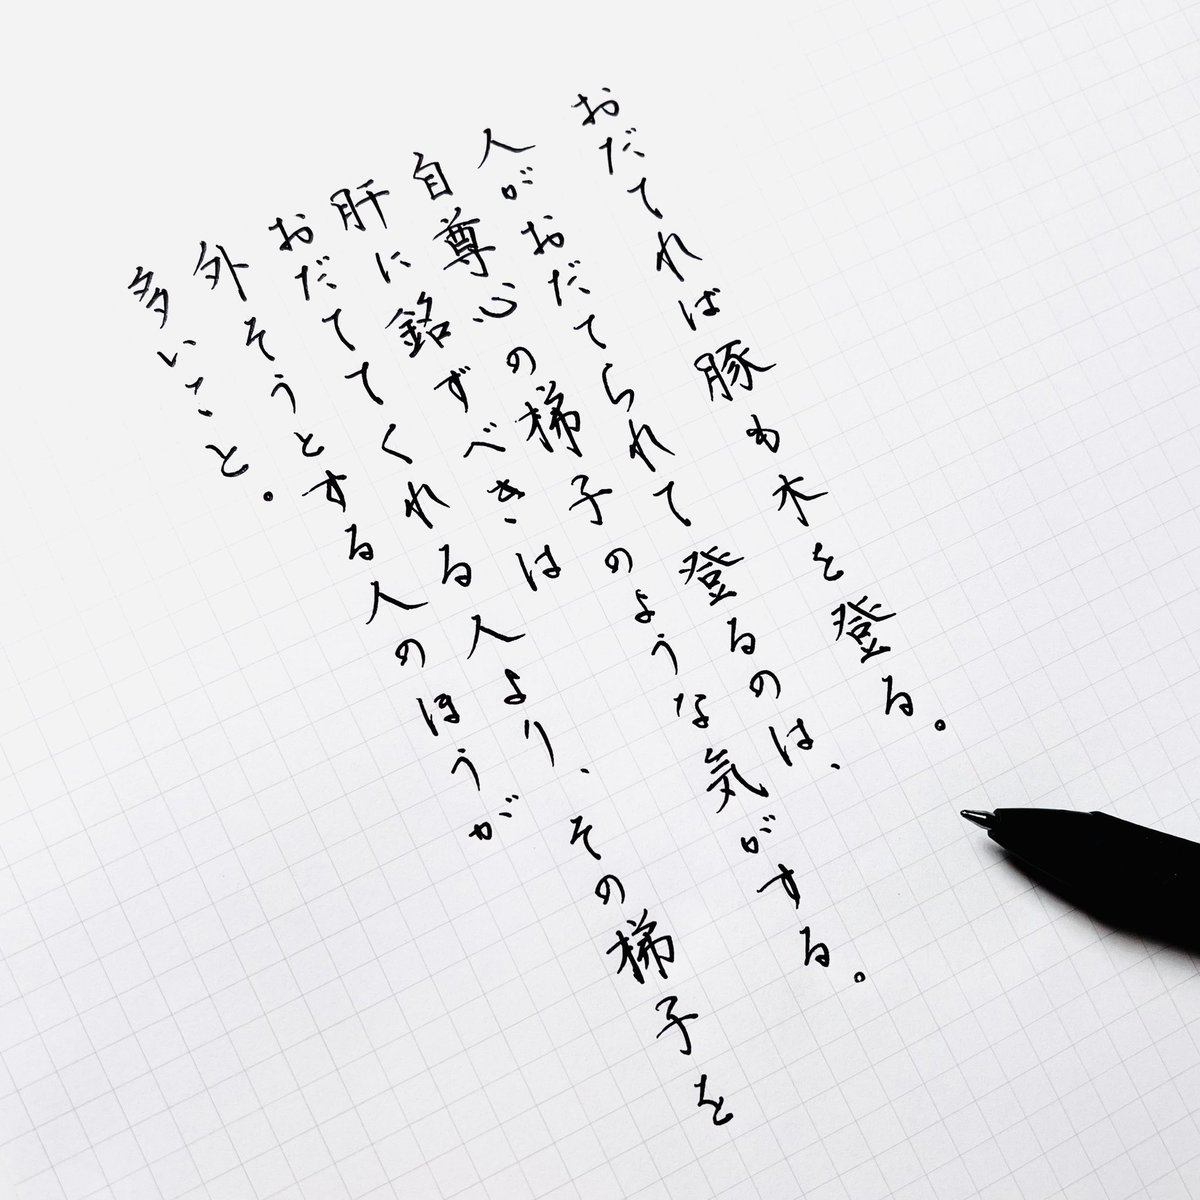 おだてれば豚も木を登る。
人がおだてられて登るのは、
自尊心の梯子のような気がする。
肝に銘ずべきは
おだててくれる人より、その梯子を
外そうとする人のほうが
多いこと。